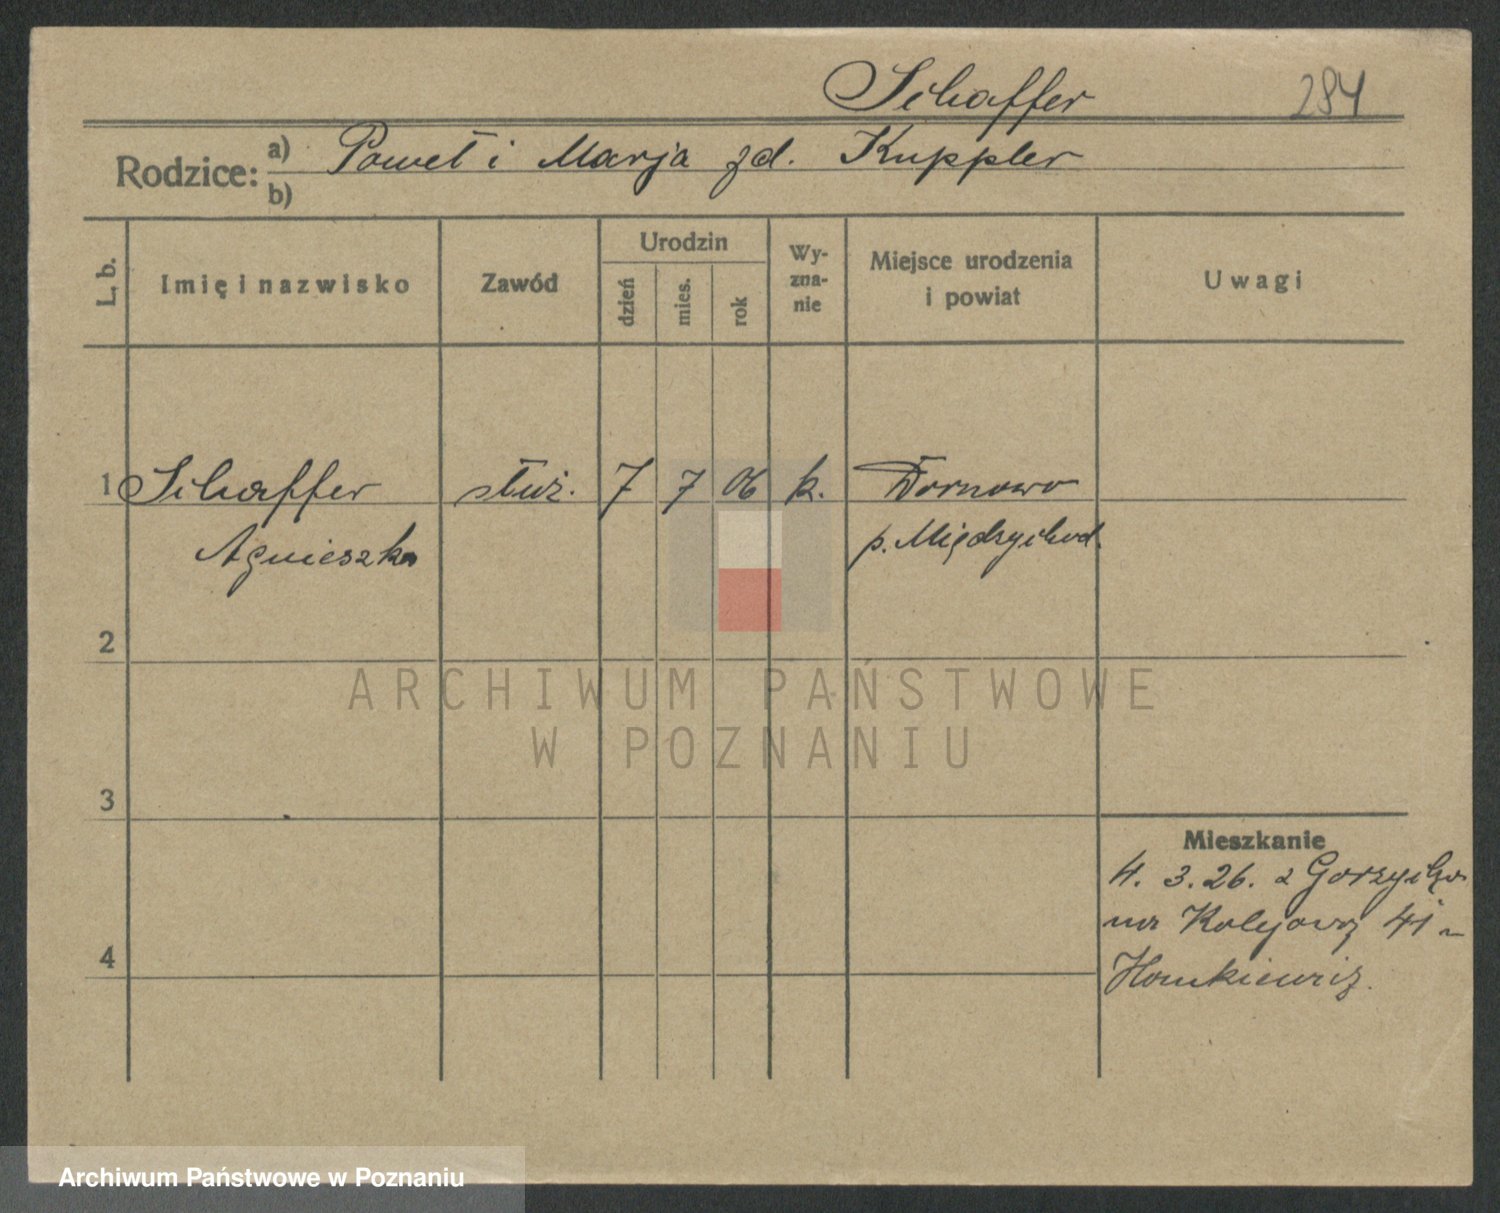 Schaffer 284
Rodzice: a) Paweł i Marja zd. Kuppler
b)
L. b. Imię i nazwisko Zawód Urodzin dzień mies. rok Wy-zna-nie Miejsce urodzenia i powiat Uwagi
1 Schaffer służ. 7 7 06 k. Dornowo
Agnieszka p. Międzychod.
2
ARCHIWUM PAŃSTWOWE
W POZNANIU
3
Mieszkanie
4. 3. 26. z
na Kolejową 41
4
Archiwum Państwowe w Poznaniu